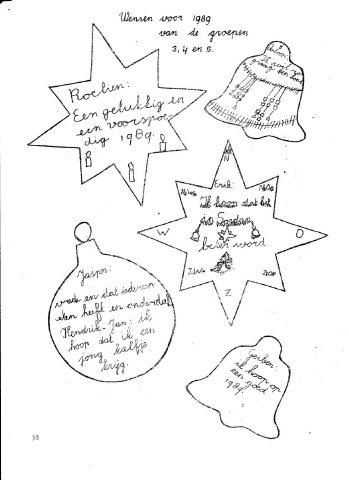 Wensen voor 1989
van de groepen
3, 4 en 5.
Rochen:
Een gelukkig en
een voorspoe-
dig 1989.
ik wil
graag een
N
Erik:
Ik hoop dat het
beter word
W
O
Z
Jasper:
vrede en dat iedereen
eten heeft en onderdak
Hendrik-Jan: ik
hoop dat ik een
jong kalfje
krijg.
Gerben:
ik hoop op
een goed
1989.
38